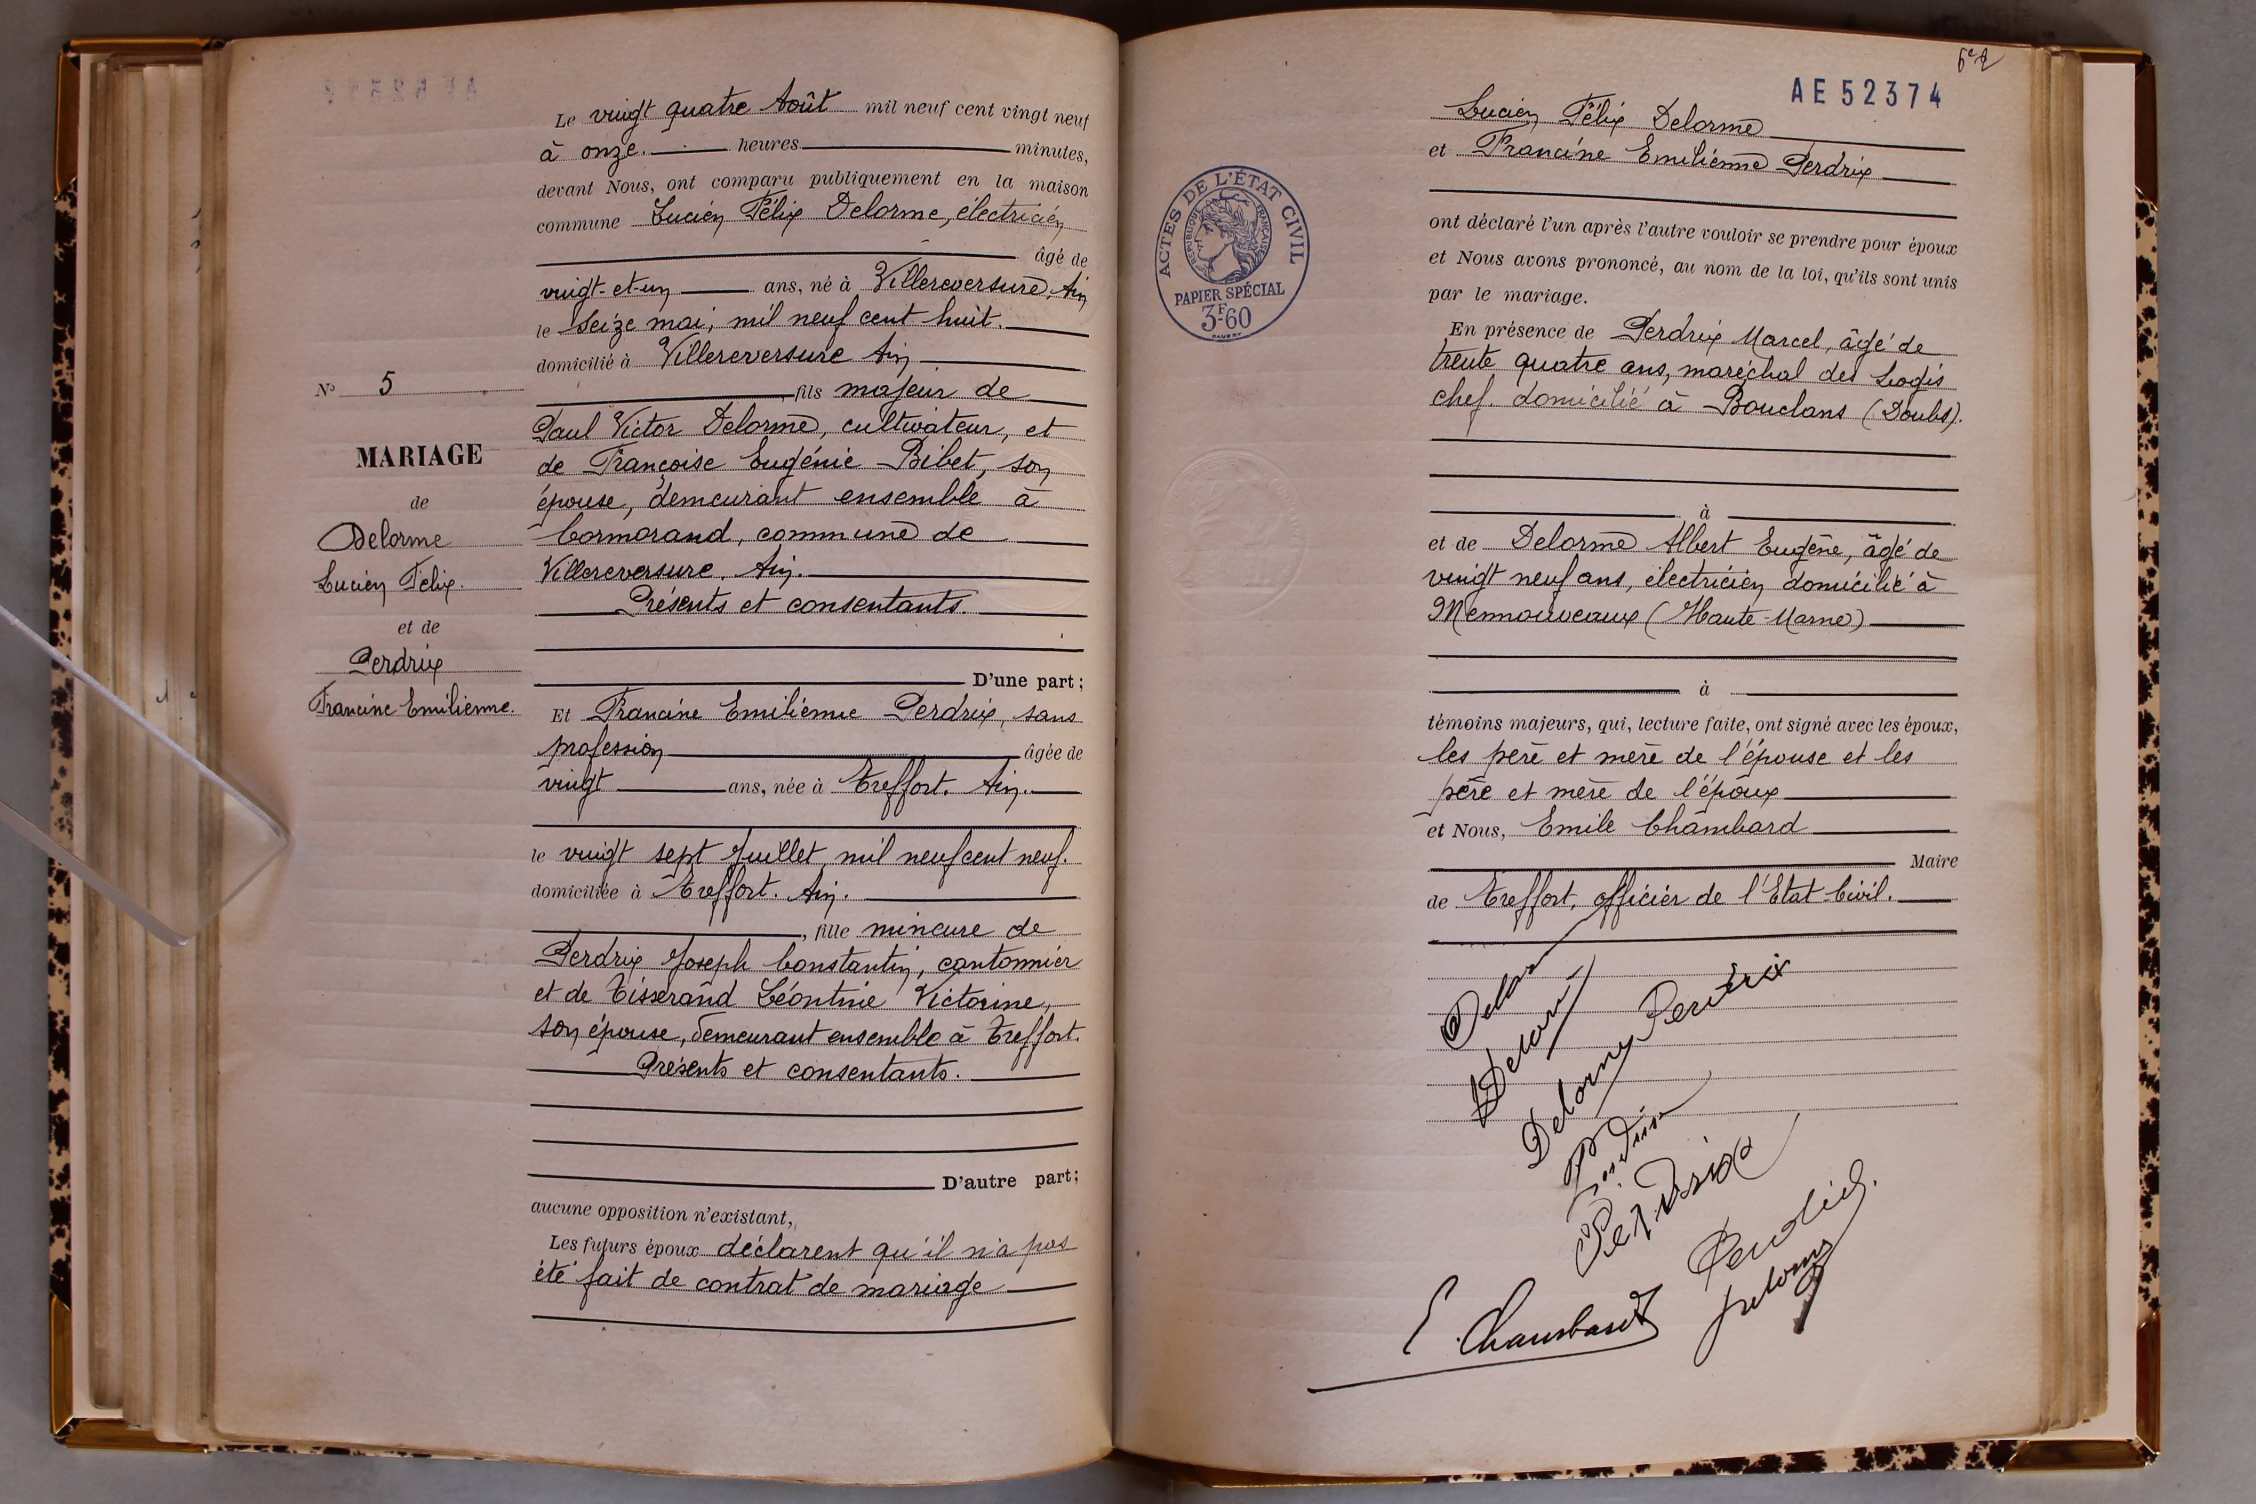 Le vingt quatre Août mil neuf cent vingt neuf
à onze. heures minutes,
devant Nous, ont comparu publiquement en la maison
commune Lucien Félix Delorme, électricien
âgé de
vingt-et-un ans, né à Villereversure, Ain
le seize mai, mil neuf cent huit.
domicilié à Villereversure Ain
N° 5
, fils majeur de
Paul Victor Delorme, cultivateur, et
MARIAGE
de Françoise Eugénie Bibet, son
de
épouse, demeurant ensemble à
Delorme
Cormorand, commune de
Lucien Felix.
Villereversure. Ain.
Présents et consentants.
et de
Perdrix
D'une part;
Francine Emilienne.
Et Francine Emilienne Perdrix, sans
profession âgée de
vingt ans, née à Treffort. Ain.
le vingt sept Juillet mil neuf cent neuf.
domiciliée à Treffort. Ain.
, fille mineure de
Perdrix Joseph Constantin, cantonnier
et de Tisserand Léontine Victorine,
son épouse, demeurant ensemble à Treffort.
Présents et consentants.
D'autre part;
aucune opposition n'existant,
Les futurs époux déclarent qu'il n'a pas
été fait de contrat de mariage
AE 52374
Lucien Félix Delorme
et Francine Emilienne Perdrix
ACTES DE L'ÉTAT CIVIL
RÉPUBLIQUE FRANÇAISE
PAPIER SPÉCIAL
3F-60
ont déclaré l'un après l'autre vouloir se prendre pour époux
et Nous avons prononcé, au nom de la loi, qu'ils sont unis
par le mariage.
En présence de Perdrix Marcel, âgé de
trente quatre ans, maréchal des Logis
chef. domicilié à Bouclans (Doubs).
à
et de Delorme Albert Eugène, âgé de
vingt neuf ans, électricien domicilié à
Mennouveaux (Haute-Marne)
à
témoins majeurs, qui, lecture faite, ont signé avec les époux,
les père et mère de l'épouse et les
père et mère de l'époux
et Nous, Emile Chambard
Maire
de Treffort, officier de l'Etat-Civil.
Delorme
Perdrix
Perdrix
E. Chambard